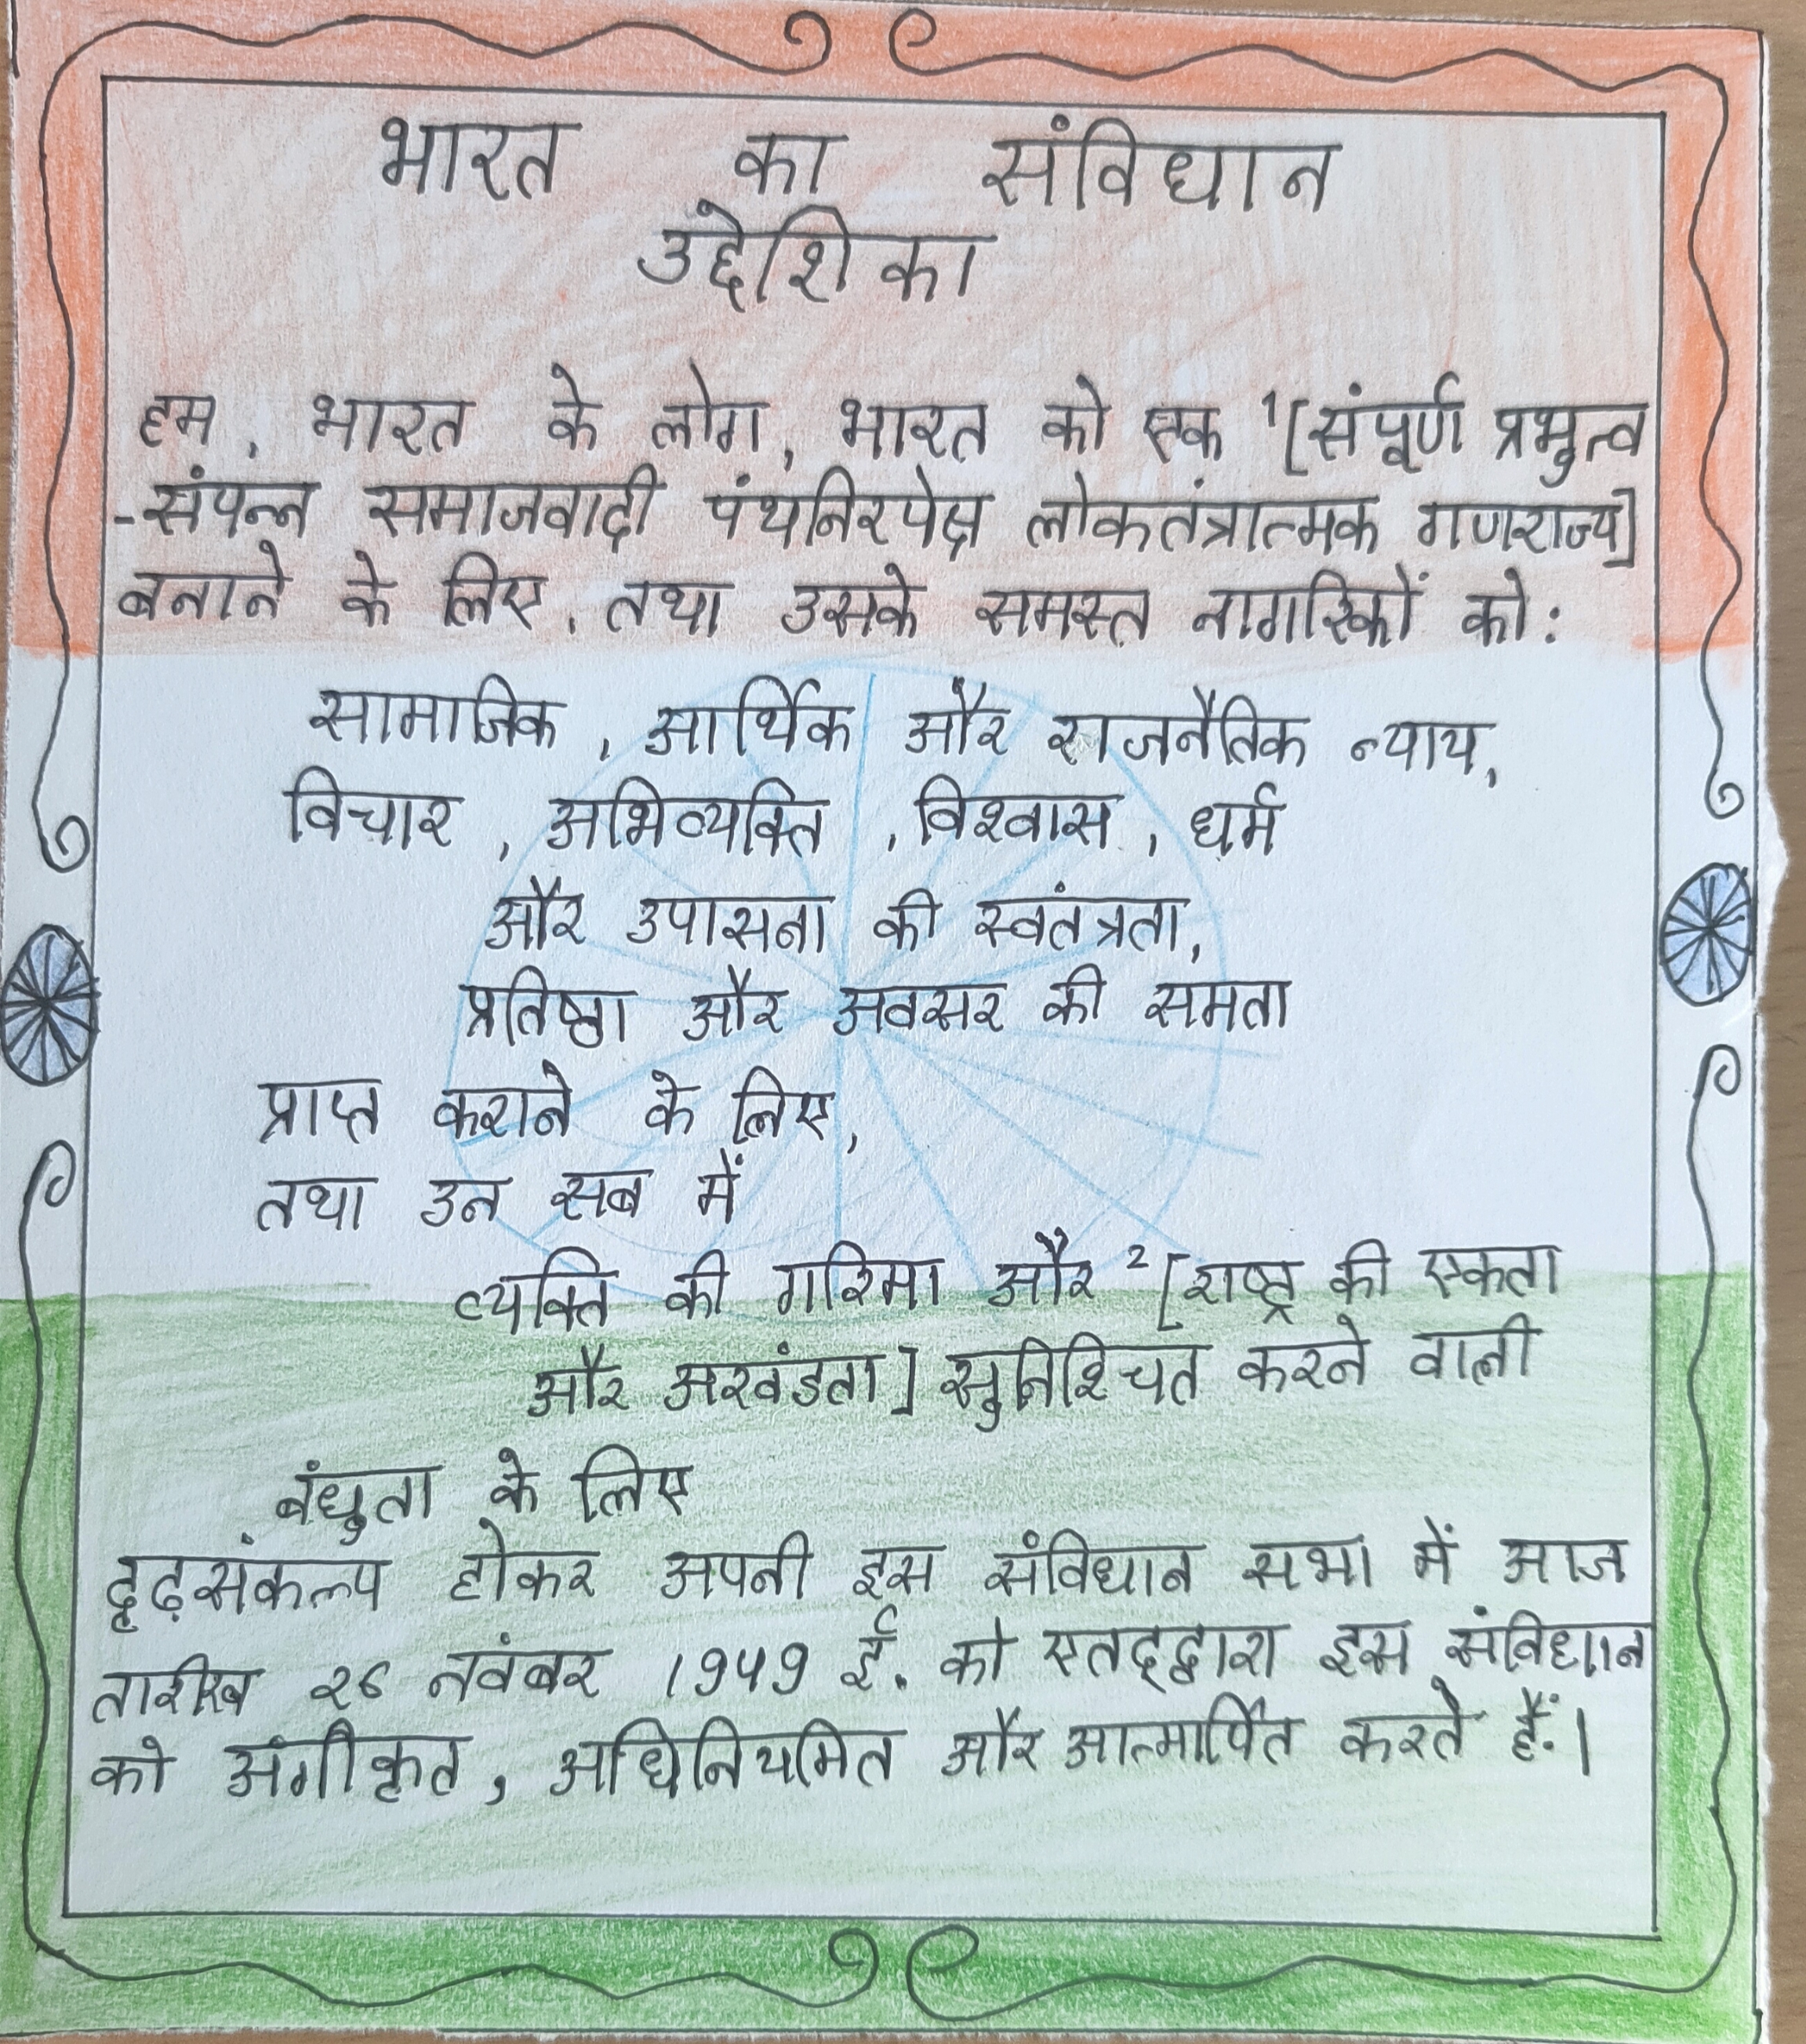 भारत का संविधान
उद्देशिका
हम, भारत के लोग, भारत को एक ¹[संपूर्ण प्रभुत्व
-संपन्न समाजवादी पंथनिरपेक्ष लोकतंत्रात्मक गणराज्य]
बनाने के लिए, तथा उसके समस्त नागरिकों को:
सामाजिक, आर्थिक और राजनैतिक न्याय,
विचार, अभिव्यक्ति, विश्वास, धर्म
और उपासना की स्वतंत्रता,
प्रतिष्ठा और अवसर की समता
प्राप्त कराने के लिए,
तथा उन सब में
व्यक्ति की गरिमा और ²[राष्ट्र की एकता
और अखंडता] सुनिश्चित करने वाली
बंधुता के लिए
दृढ़संकल्प होकर अपनी इस संविधान सभा में आज
तारीख 26 नवंबर 1949 ई. को एतद्द्वारा इस संविधान
को अंगीकृत, अधिनियमित और आत्मार्पित करते हैं।